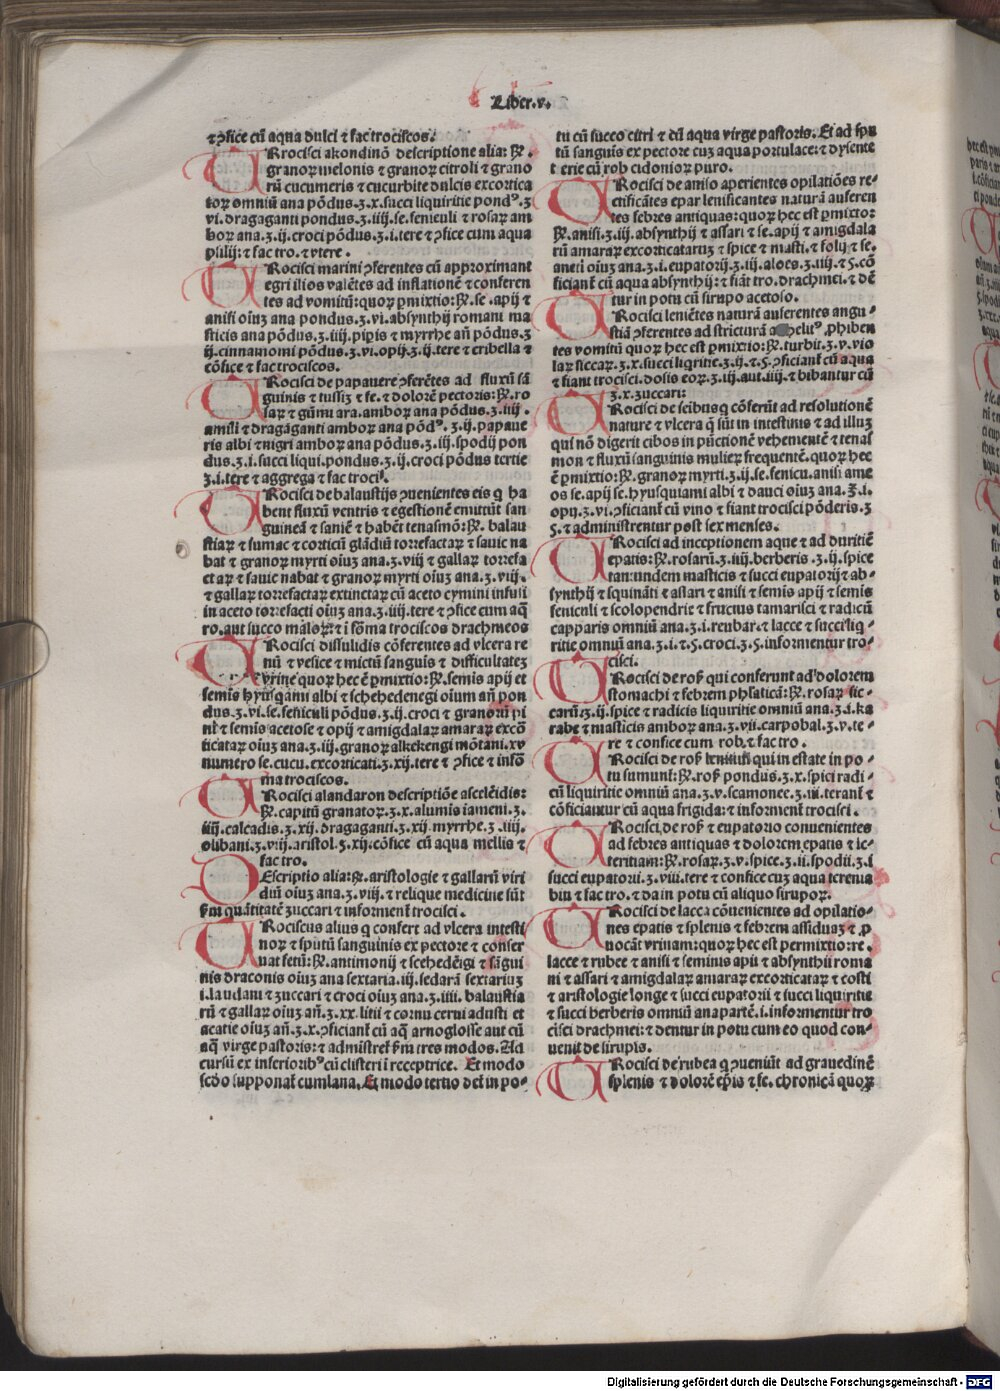 Liber.v.
⁊ ꝯfice cū aqua dulci ⁊ fac trociscos.
TRrocisci akondinō descriptione alia: ℞.
granoꝝ melonis ⁊ granoꝝ citroli ⁊ grano
rū cucumeris ⁊ cucurbite dulcis excortica
toꝝ omniū ana pōdus.ʒ.x.succi liquiritie pondꝰ.ʒ
vi. dragaganti pondus.ʒ.iiij.se.feniculi ⁊ rosaꝝ am
boꝝ ana.ʒ.ij. croci pōdus.ʒ.i.tere ⁊ ꝯfice cum aqua
psilij: ⁊ fac tro. ⁊ vtere.
TRocisci marini ꝯferentes cū approximant
egri ilios valētes ad inflationē ⁊ conferen
tes ad vomitū: quoꝝ pmixtio: ℞. se. apij ⁊
anisi oiuꝫ ana pondus.ʒ.vi. absynthij romani ma
sticis ana pōdus.ʒ.iiij. pipis ⁊ myrrhe an̄ pōdus.ʒ
ij.cinnamomi pōdus.ʒ.vi.opij.ʒ.ij.tere ⁊ cribella ⁊
cōfice ⁊ fac trociscos.
TRocisci de papauere ꝯferētes ad fluxū sā
guinis ⁊ tussiꝫ ⁊ fe. ⁊ dolorē pectoris: ℞. ro
saꝝ ⁊ gūmi ara. amboꝝ ana pōdus.ʒ.iiij.
amili ⁊ dragaganti amboꝝ ana pōdꝰ.ʒ.ij. papaue
ris albi ⁊ nigri amboꝝ ana pōdus.ʒ.iij. spodij pon
dus.ʒ.i. succi liqui. pondus.ʒ.ij. croci pōdus tertie
ʒ.i. tere ⁊ aggrega ⁊ fac troci.
TRocisci de balaustijs ꝯuenientes eis q̄ ha
bent fluxū ventris ⁊ egestionē emittūt san
guineā ⁊ saniē ⁊ habēt tenasmō: ℞. balau
stiaꝝ ⁊ sumac ⁊ corticū glādiū torrefactaꝝ ⁊ sauic na
bat ⁊ granoꝝ myrti oiuꝫ ana.ʒ.viij ⁊ gallaꝝ torrefa
ctaꝝ ⁊ sauic nabat ⁊ granoꝝ myrti oiuꝫ ana.ʒ.viij.
⁊ gallaꝝ torrefactaꝝ extinctaꝝ cū aceto cymini infusi
in aceto torrefacti oiuꝫ ana.ʒ.iiij. tere ⁊ ꝯfice cum aq̄
ro. aut succo maloꝝ: ⁊ i fōma trociscos drachmeos
TRocisci dissulidis cōferentes ad vlcera re
nū ⁊ vesice ⁊ mictū sanguis ⁊ difficultateꝫ
vrine quoꝝ hec ē pmixtio: ℞. semis apij et
semis hyusqami albi ⁊ schehedenegi oium an̄ pon
dus.ʒ.vi. se. feniculi pōdus.ʒ.ij. croci ⁊ granorū pi
ni ⁊ semis acetose ⁊ opij ⁊ amigdalaꝝ amaraꝝ excō
ticataꝝ oiuꝫ ana.ʒ.iij. granoꝝ alkekengi mōtani. xv
numero se. cucu. excorticati.ʒ.xij. tere ⁊ ꝯfice ⁊ infō
ma trociscos.
TRocisci alandaron descriptiōe asclēidis:
℞. capitū granatoꝝ.ʒ.x. alumis iameni.ʒ.
iiij. calcadis.ʒ.xij. dragaganti.ʒ.xij myrrhe.ʒ.iiij.
olibani.ʒ.viij. aristol.ʒ.xij. cōfice cū aqua mellis ⁊
fac tro.
DEscriptio alia: ℞. aristologie ⁊ gallarū viri
diū oiuꝫ ana.ʒ.viij. ⁊ relique medicine sūt
ẜm quātitatē zuccari ⁊ informent trocisci.
TRociscus alius q̄ confert ad vlcera intesti
noꝝ ⁊ sputū sanguinis ex pectore ⁊ conser
uat fetū: ℞. antimonij ⁊ scehedēgi ⁊ sāgui
nis draconis oiuꝫ ana sextaria. iij. sedarā sextariuꝫ
i. laudani ⁊ zuccari ⁊ croci oiuꝫ ana.ʒ.iiii. balaustia
rū ⁊ gallaꝝ oiuꝫ an̄.ʒ.xx. litii ⁊ cornu cerui adusti et
acatie oiuꝫ an̄.ʒ.x. ꝯficiant cū aq̄ arnoglosse aut cū
aq̄ virge pastoris: ⁊ admistret ẜm tres modos. Ad
cursū ex inferioribꝰ cū clisteri i receptrice. Et modo
scdo supponat cum lana. Et modo tertio det in po-
tu cū succo citri ⁊ cū aqua virge pastoris. Et ad spu
tū sanguis ex pectore cuꝫ aqua portulace: ⁊ dysente
terie cū rob cidonioꝝ puro.
TRocisci de aniso aperientes opilatiōes re-
ctificātes epar lenificantes naturā auferen
tes febres antiquas: quoꝝ hec est pmixto:
℞. anisi.ʒ.iij. absynthij ⁊ assari ⁊ se. apij ⁊ amigdala
rū amaraꝝ excorticataruꝫ ⁊ spice ⁊ masti. ⁊ folij ⁊ se.
aneti oiuꝫ ana.ʒ.i. eupatorij.ʒ.iij. aloes.ʒ.iiij. ⁊ s. cō
ficiant cū aqua absynthij: ⁊ fiāt tro. drachmei. ⁊ dē
tur in potu cū sirupo acetoso.
TRocisci leniētes naturā auferentes angu-
stiā ꝯferentes ad stricturā a helitꝰ ꝓhiben
tes vomitū quoꝝ hec est pmixtio: ℞. turbit.ʒ.v. vio
laꝝ siccaꝝ.ʒ.x. succi liqritie.ʒ.ij. ⁊ s. ꝯficiant cū aqua
⁊ fiant trocisci. dosis eoꝝ.ʒ.iij. aut. iiij. ⁊ bibantur cū
ʒ.x. zuccari:
TRocisci de scibusq cōferūt ad resolutionē
nature ⁊ vlcera q̄ sūt in intestinis ⁊ ad illuꝫ
qui nō digerit cibos in pūctionē vehementē ⁊ tenas
mon ⁊ fluxū sanguinis mulieꝝ frequentē. quoꝝ hec
ē pmixtio: ℞. granoꝝ myrti.ʒ.ij. se. fenicu. anisi ame
os se. apij se. hyusquiami albi ⁊ dauci oiuꝫ ana.ʒ.i.
opij.ʒ.vi. ꝯficiant cū vino ⁊ fiant trocisci pōderis.ʒ
s. ⁊ administrentur post sex menses.
TRocisci ad inceptionem aque ⁊ ad duritiē
epatis: ℞. rosarū.ʒ.iiij. berberis.ʒ.ij. spice
tantundem masticis ⁊ succi eupatorij ⁊ ab-
synthij ⁊ squināti ⁊ assari ⁊ anisi ⁊ semis apij ⁊ semis
feniculi ⁊ scolopendrie ⁊ fructus tamarisci ⁊ radicū
capparis omniū ana.ʒ.i. reubar. ⁊ lacce ⁊ succi liq-
ritie omniū ana.ʒ.i. ⁊ s. croci.ʒ.s. informentur tro-
cisci.
TRocisci de ros̄ qui conferunt ad dolorem
stomachi ⁊ febrem phlaticā: ℞. rosaꝝ sic-
carū.ʒ.ij. spice ⁊ radicis liquiritie omniū ana.ʒ.i. ka
rabe ⁊ masticis amboꝝ ana.ʒ.vii. carpobal.ʒ.v. te-
re ⁊ confice cum rob. ⁊ fac tro.
TRocisci de ros̄ qui in estate in po-
tu sumunt: ℞. ros̄ pondus.ʒ.x. spici radi-
cū liquiritie omniū ana.ʒ.v. scamonee.ʒ.iii. terant ⁊
cōficiantur cū aqua frigida: ⁊ informent trocisci.
TRocisci de ros̄ ⁊ eupatorio conuenientes
ad febres antiquas ⁊ dolorem epatis ⁊ ic-
teritiam: ℞. rosaꝝ.ʒ.v. spice.ʒ.ii. spodii.ʒ.i
succi eupatorii.ʒ.viii. tere ⁊ confice cuꝫ aqua terenia
bin ⁊ fac tro. ⁊ da in potu cū aliquo sirupoꝝ.
TRocisci de lacca cōuenientes ad opilatio-
nes epatis ⁊ splenis ⁊ febrem assiduaꝫ ⁊ ꝓ
uocāt vrinam: quoꝝ hec est permixtio: re.
lacce ⁊ rubee ⁊ anisi ⁊ seminis apii ⁊ absynthii roma
ni ⁊ assari ⁊ amigdalaꝝ amaraꝝ excorticataꝝ ⁊ costi
⁊ aristologie longe ⁊ succi eupatorii ⁊ succi liquiritie
⁊ succi berberis omniū ana partē. i. informentur tro
cisci drachmei: ⁊ dentur in potu cum eo quod con-
uenit de sirupis.
TRocisci de rubea q̄ ꝯueniūt ad grauedinē
splenis ⁊ dolorē epīs ⁊ fe. chronicā quoꝝ
Digitalisierung gefördert durch die Deutsche Forschungsgemeinschaft - DFG